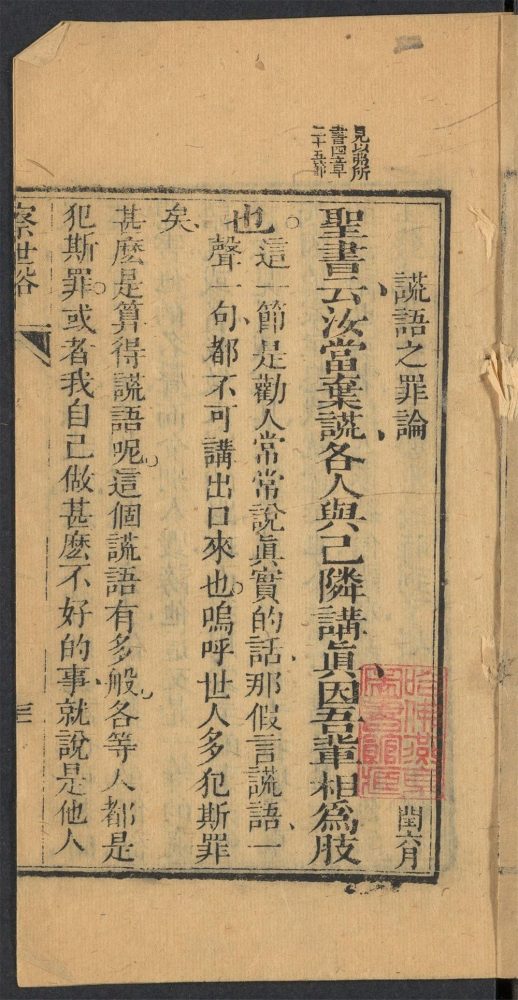 見以弗所
書四章
二十五節
謊語之罪論
閏六月
聖書云汝當棄謊各人與己隣講眞因吾輩相爲肢
也。這一節是勸人常常說眞實的話、那假言謊語、一
聲一句、都不可講出口來也。嗚呼世人多犯斯罪
矣
甚麽是算得謊語呢。這個謊語有多般。各等人都是
犯斯罪。或者我自己做甚麽不好的事、就說是他人
察世俗